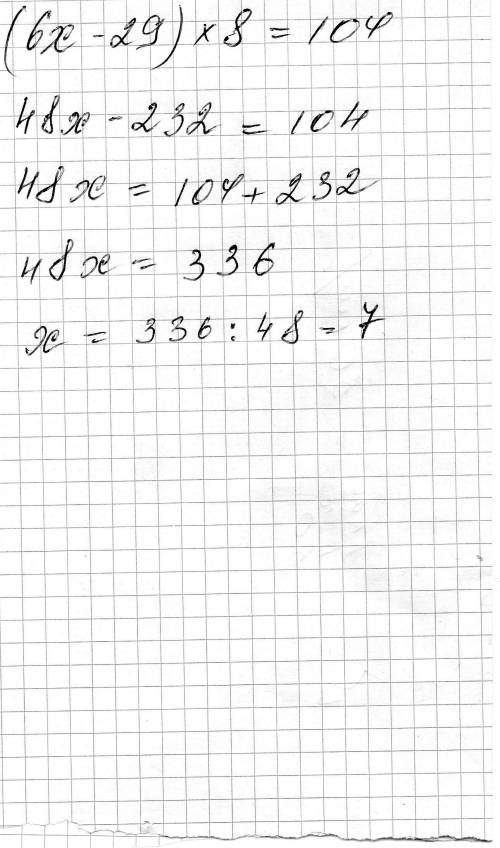 (6x - 29) × 8 = 104
48x - 232 = 104
48x = 104 + 232
48x = 336
x = 336 : 48 = 7